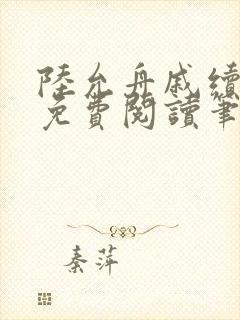 陸允舟戚續
免費閱讀筆
秦萍